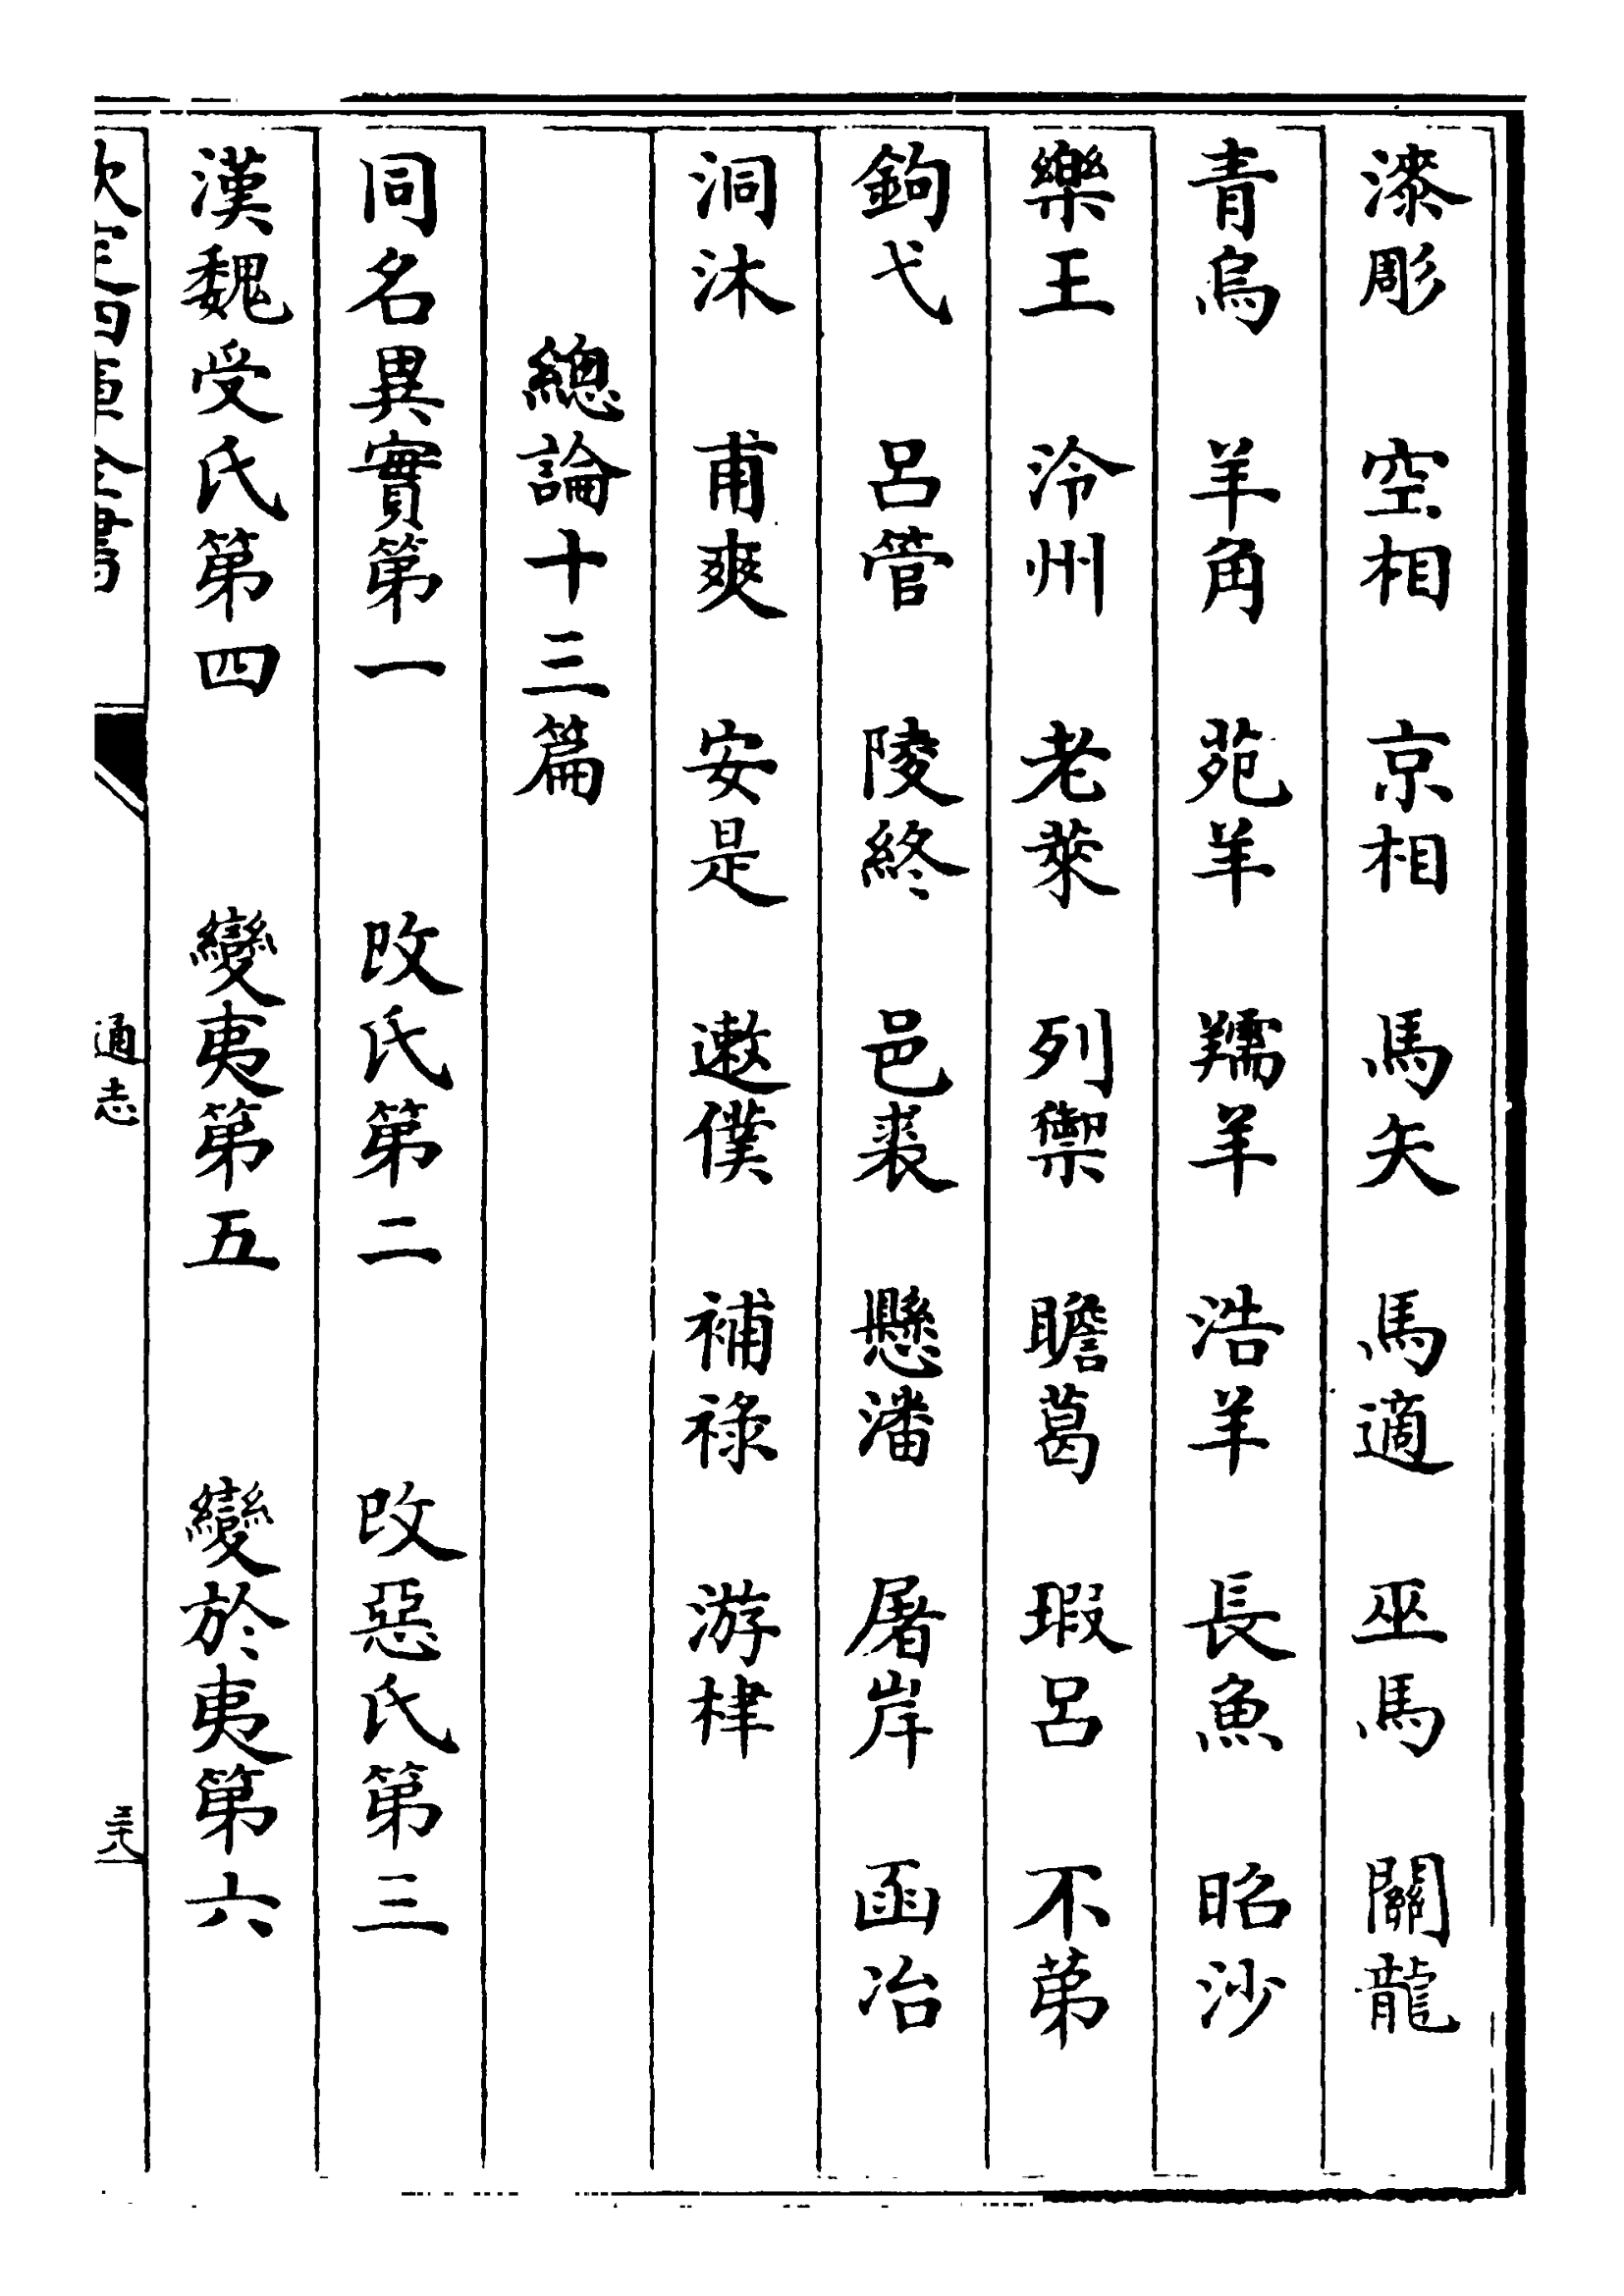 漆彫　空相　京相　馬矢　馬適　巫馬　關龍
青烏　羊角　苑羊　羺羊　浩羊　長魚　昭沙
樂王　泠州　老萊　列禦　瞻葛　瑕呂　不苐
鉤弋　呂管　陵終　邑裘　懸潘　屠岸　函冶
洞沐　甫爽　安是　遬僕　補祿　游𣒃
總論十三篇
同名異實第一　改氏第二　改惡氏第三
漢魏受氏第四　變夷第五　變於夷第六
欽定四庫全書　通志　三十八